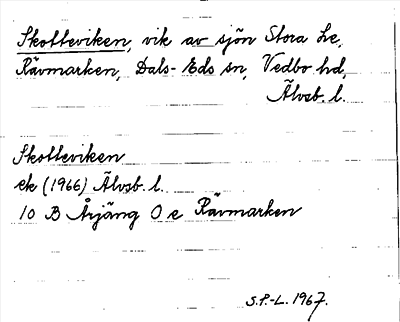 Skotteviken, vik av sjön Stora Le,
Rävmarken, Dals-Eds sn, Vedbo hd,
Älvsb. l.
Skotteviken
ek (1966) Älvsb. l.
10 B Årjäng 0 e Rävmarken
S.F.-L. 1967.